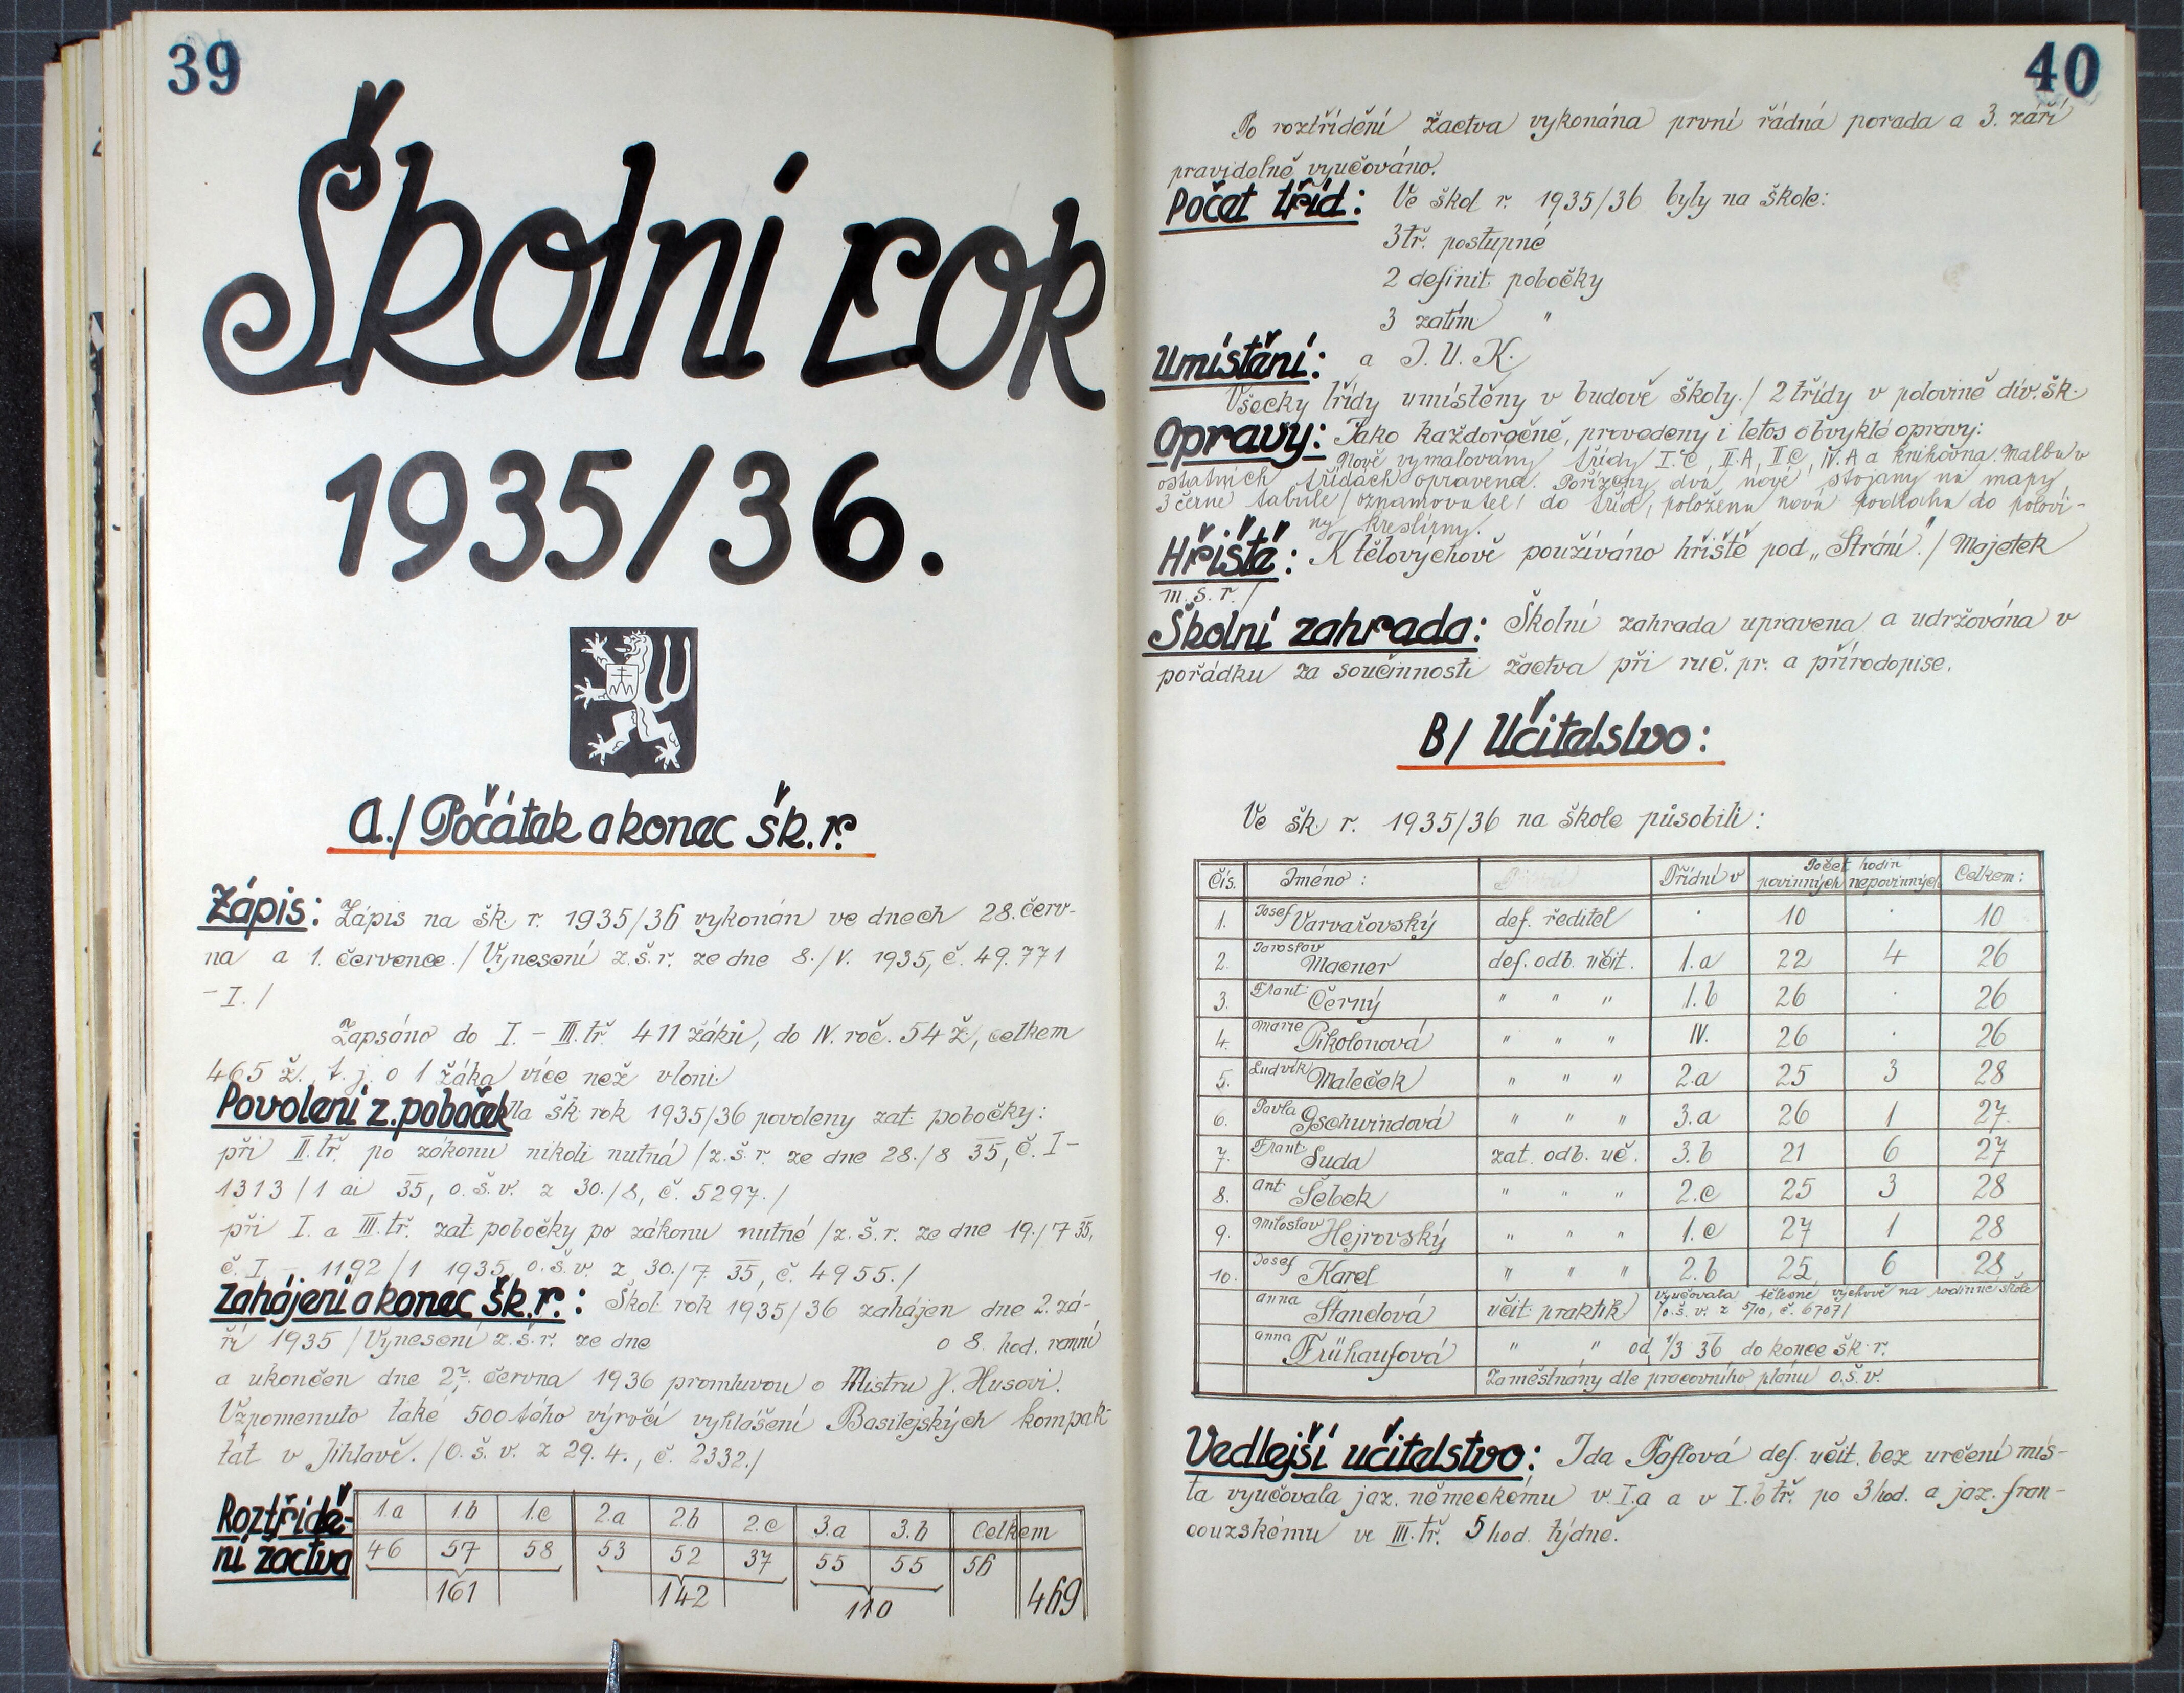 39
Školní rok
1935/36.
A./ Počátek a konec šk. r.
Zápis: Zápis na šk. r. 1935/36 vykonán ve dnech 28. červ-
na a 1. července. / Vynesení z.š.r. ze dne 8./V. 1935, č. 49.771
- I. /
Zapsáno do I. - III. tř. 411 žáků, do IV. roč. 54 ž., celkem
465 ž. t. j. o 1 žáka více než vloni.
Povolení z. poboček Na šk. rok 1935/36 povoleny zat. pobočky:
při II. tř. po zákonu nikoli nutná / z.š.r. ze dne 28./8 35, č. I-
1313/1 ai 35, o.š.v. z 30./8, č. 5297. /
při I. a III. tř. zat. pobočky po zákonu nutné / z.š.r. ze dne 19./7 35,
č. I - 1192/1 1935, o.š.v. z 30./7. 35, č. 4955. /
Zahájení a konec šk. r.: Škol. rok 1935/36 zahájen dne 2. zá-
ří 1935 / Vynesení z.š.r. ze dne o 8. hod. ranní
a ukončen dne 27. června 1936 promluvou o Mistru J. Husovi.
Vzpomenuto také 500tého výročí vyhlášení Basilejských kompak-
tat v Jihlavě. / O.š.v. z 29. 4., č. 2332. /
Roztřídě-
ní žactva
1.a 1.b 1.c 2.a 2.b 2.c 3.a 3.b Celkem
46 57 58 53 52 37 55 55 56
161 142 110 469
40
Po roztřídění žactva vykonána první řádná porada a 3. září
pravidelně vyučováno.
Počet tříd: Ve škol r. 1935/36 byly na škole:
3 tř. postupné
2 definit. pobočky
3 zatím "
a J. U. K.
Umístění:
Všecky třídy umístěny v budově školy. / 2 třídy v polovině dív. šk.
Opravy: Jako každoročně, provedeny i letos obvyklé opravy:
Nově vymalovány třídy I.C, II.A, II.C, IV.A a knihovna. Malba v
ostatních třídách opravena. Pořízeny dva nové stojany na mapy,
3 černé tabule / oznamovatel / do tříd, položena nová podlaha do polovi-
ny kreslírny.
Hřiště: K tělovýchově používáno hřiště pod „Strání". / Majetek
m. š. r. /
Školní zahrada: Školní zahrada upravena a udržována v
pořádku za součinnosti žactva při ruč. pr. a přírodopise.
B/ Učitelstvo:
Ve šk. r. 1935/36 na škole působili:
Čís. Jméno: Třídní v Počet hodin povinných nepovinných Celkem:
1. Josef Varvařovský def. ředitel . 10 . 10
2. Jaroslav Macner def. odb. učit. 1.a 22 4 26
3. Frant. Černý " " " 1.b 26 . 26
4. Marie Pikolonová " " " IV. 26 . 26
5. Ludvík Maleček " " " 2.a 25 3 28
6. Pavla Gschwindová " " " 3.a 26 1 27
7. Frant. Suda zat. odb. uč. 3.b 21 6 27
8. Ant. Šebek " " " 2.c 25 3 28
9. Miloslav Hejrovský " " " 1.c 27 1 28
10. Josef Karel " " " 2.b 25 6 28
Anna Štandová učit. praktik. vyučovala tělesné výchově na rodinné škole
/o.š.v. z 5/10, č. 6707/
Anna Frühaufová " " od 1/3 36 do konce šk. r.
Zaměstnány dle pracovního plánu o.š.v.
Vedlejší učitelstvo: Ida Taflová def. učit. bez určení mís-
ta vyučovala jaz. německému v I.a a v I.b tř. po 3 hod. a jaz. fran-
couzskému ve III. tř. 5 hod. týdně.